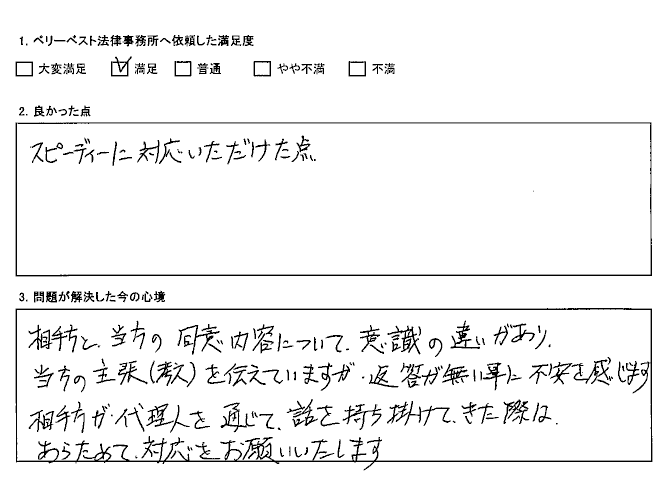 1. ベリーベスト法律事務所へ依頼した満足度
□ 大変満足 ☑ 満足 □ 普通 □ やや不満 □ 不満
2. 良かった点
スピーディーに対応いただけた点.
3. 問題が解決した今の心境
相手方と、当方の同意内容について、意識の違いがあり、
当方の主張(考え)を伝えていますが、返答が無い事に不安を感じます
相手方が、代理人を通じて、話を持ち掛けて、きた際は、
あらためて、対応をお願いいたします